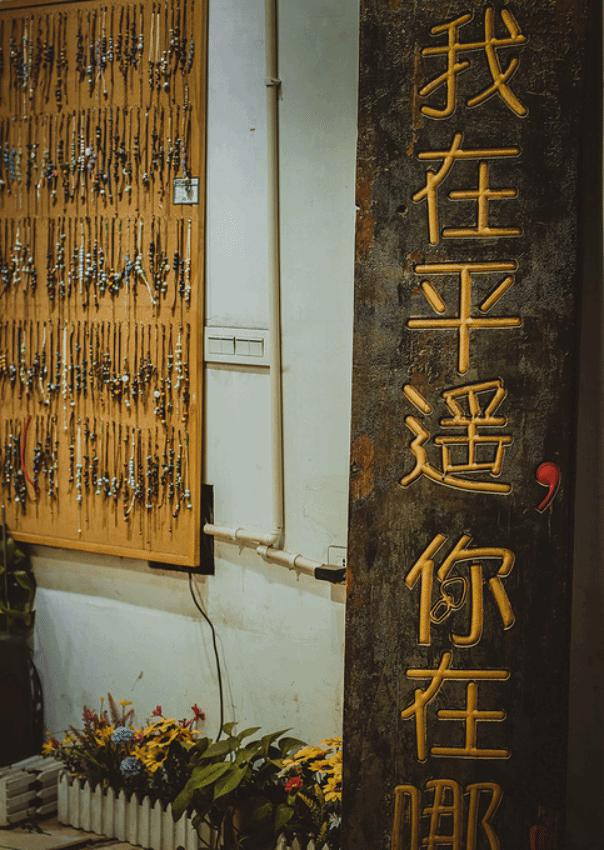 我在平遥,你在哪